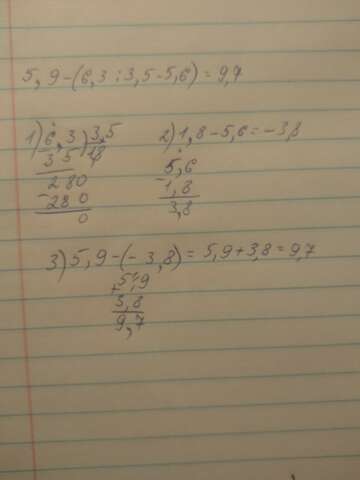 5,9-(6,3:3,5-5,6)=9,7
1) 6,3 | 3,5
35 | 1,8
280
-280
0
2) 1,8-5,6=-3,8
5,6
-1,8
3,8
3) 5,9-(-3,8)=5,9+3,8=9,7
5,9
+3,8
9,7